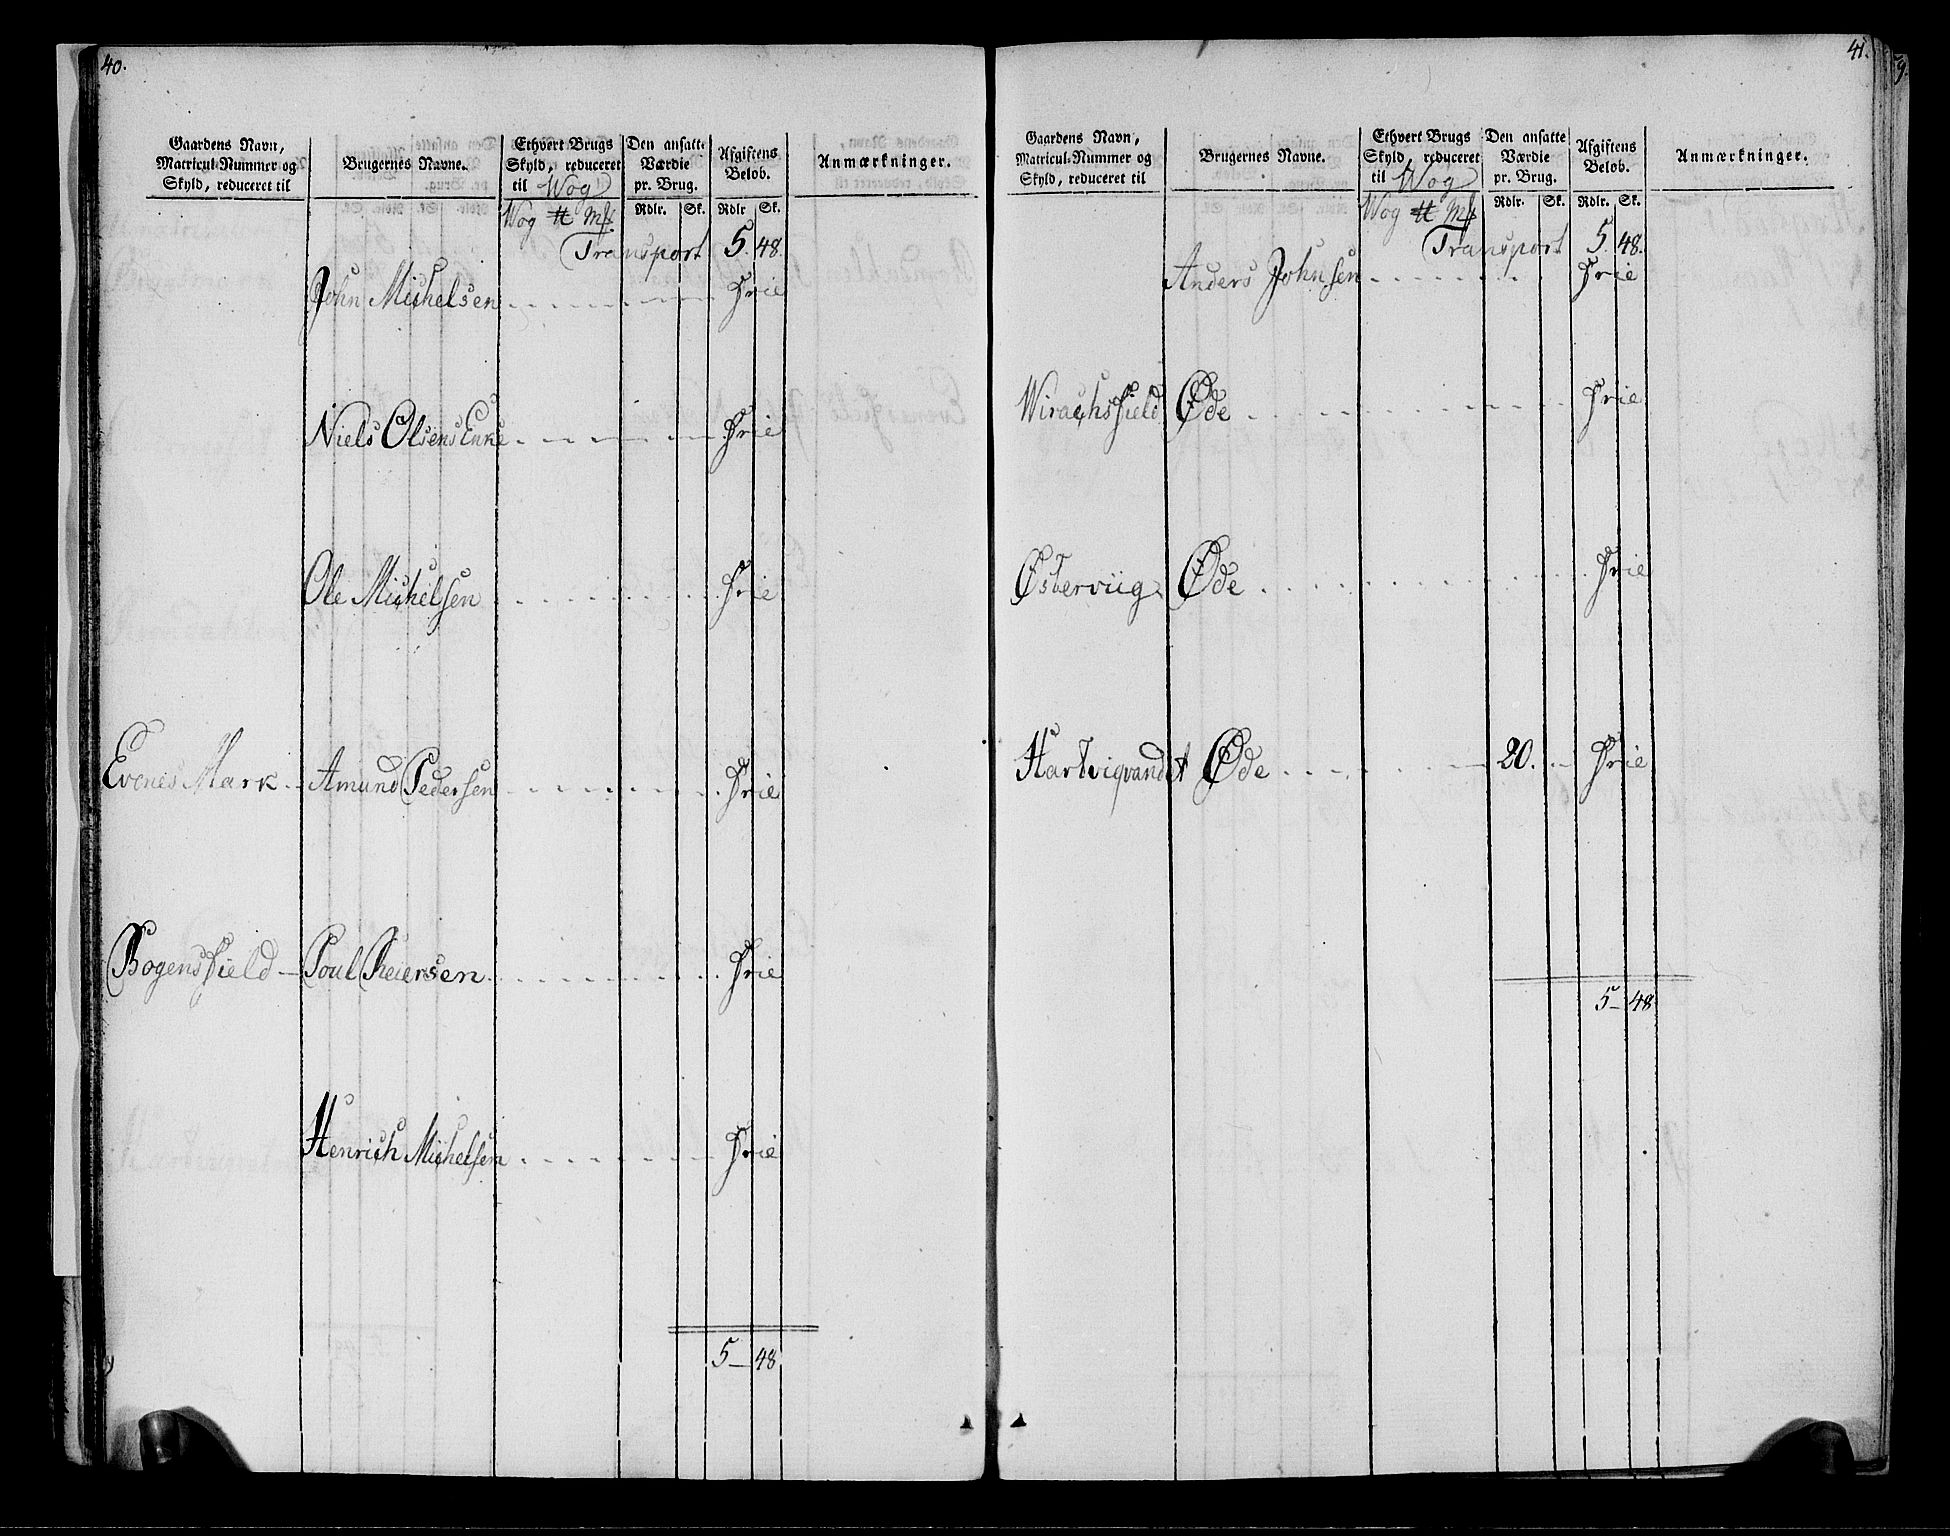 40.
Gaardens Navn, Matricul-Nummer og Skyld, reduceret til
Brugernes Navne.
Ethvert Brugs Skyld, reduceret til Wog
Den ansatte Værdie pr. Brug.
Afgiftens Beløb.
Anmærkninger.
Wog ℔ Mk Rdlr. Sk. Rdlr Sk.
Transport 5. 48.
John Michelsen Frie
Niels Olsens Enke Frie
Ole Michelsen Frie
Evenes Mark Amund Pedersen Frie
Bogensfield Poul Reiersen Frie
Henrich Michelsen Frie
5 48
41.
Gaardens Navn, Matricul-Nummer og Skyld, reduceret til
Brugernes Navne.
Ethvert Brugs Skyld, reduceret til Wog
Den ansatte Værdie pr. Brug.
Afgiftens Beløb.
Anmærkninger.
Wog ℔ Mk Rdlr. Sk. Rdlr. Sk.
Transport 5. 48.
Anders Johnsen Frie
Wirachsfield Øde Frie
Østerviig Øde Frie
Hartvigvandet Øde 20. Frie
5 48